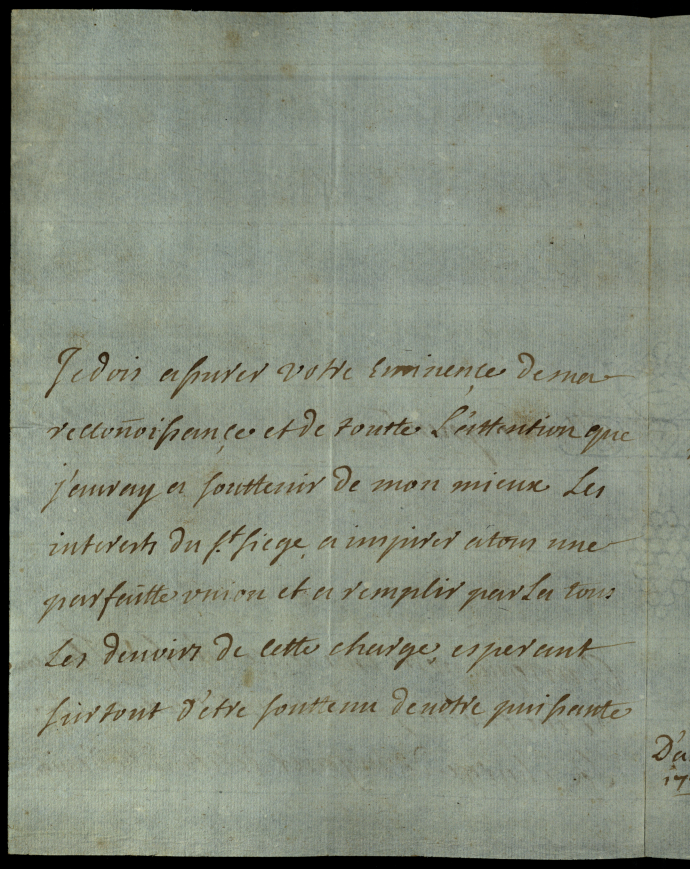 Je dois assurer votre Eminençe de ma
reconnoissançe et de toutte L'attention que
j'auray a souttenir de mon mieux Les
interests du st. siege, a inspirer à tous une
parfaitte union et a remplir par La tous
Les devoirs de cette charge, esperant
surtout d'etre souttenu de votre puissante
D'a
17